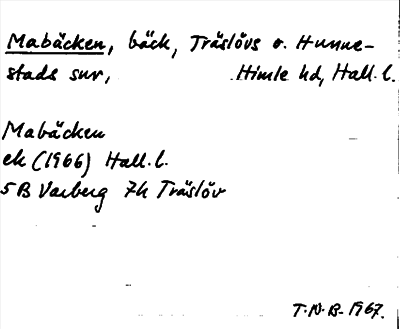 Mabäcken, bäck, Träslövs o. Hunne-
stads snr, Himle hd, Hall. l.
Mabäcken
ek (1966) Hall. l.
5B Varberg 7h Träslöv
T.N.B. 1967.